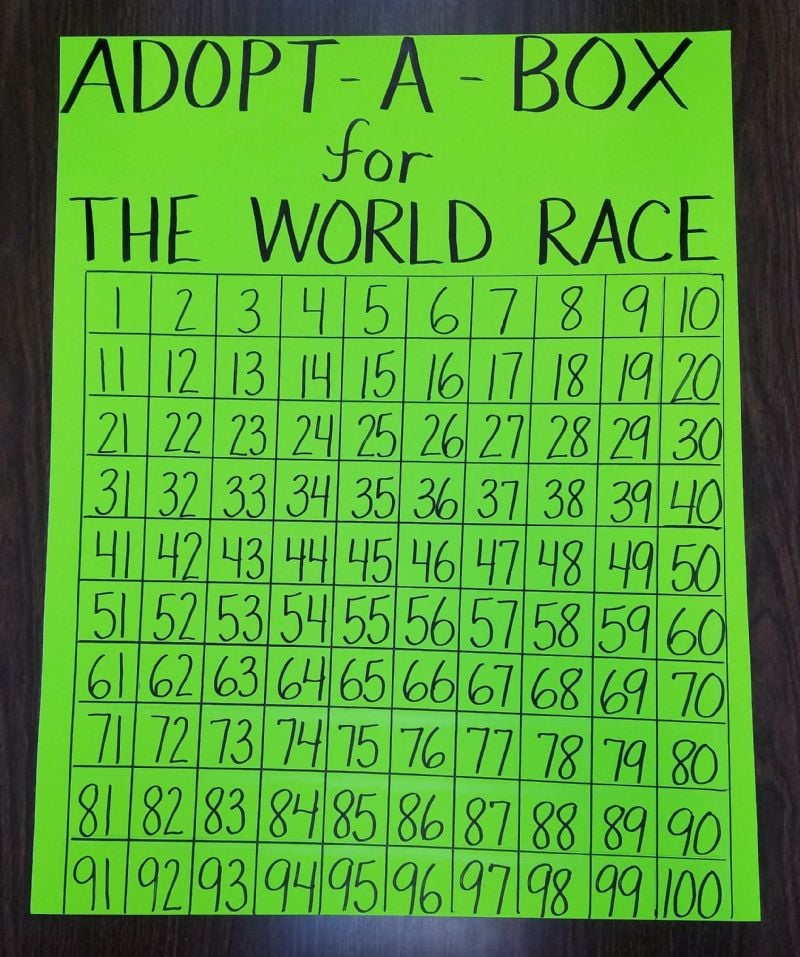 ADOPT-A-BOX
for
THE WORLD RACE
1 2 3 4 5 6 7 8 9 10
11 12 13 14 15 16 17 18 19 20
21 22 23 24 25 26 27 28 29 30
31 32 33 34 35 36 37 38 39 40
41 42 43 44 45 46 47 48 49 50
51 52 53 54 55 56 57 58 59 60
61 62 63 64 65 66 67 68 69 70
71 72 73 74 75 76 77 78 79 80
81 82 83 84 85 86 87 88 89 90
91 92 93 94 95 96 97 98 99 100